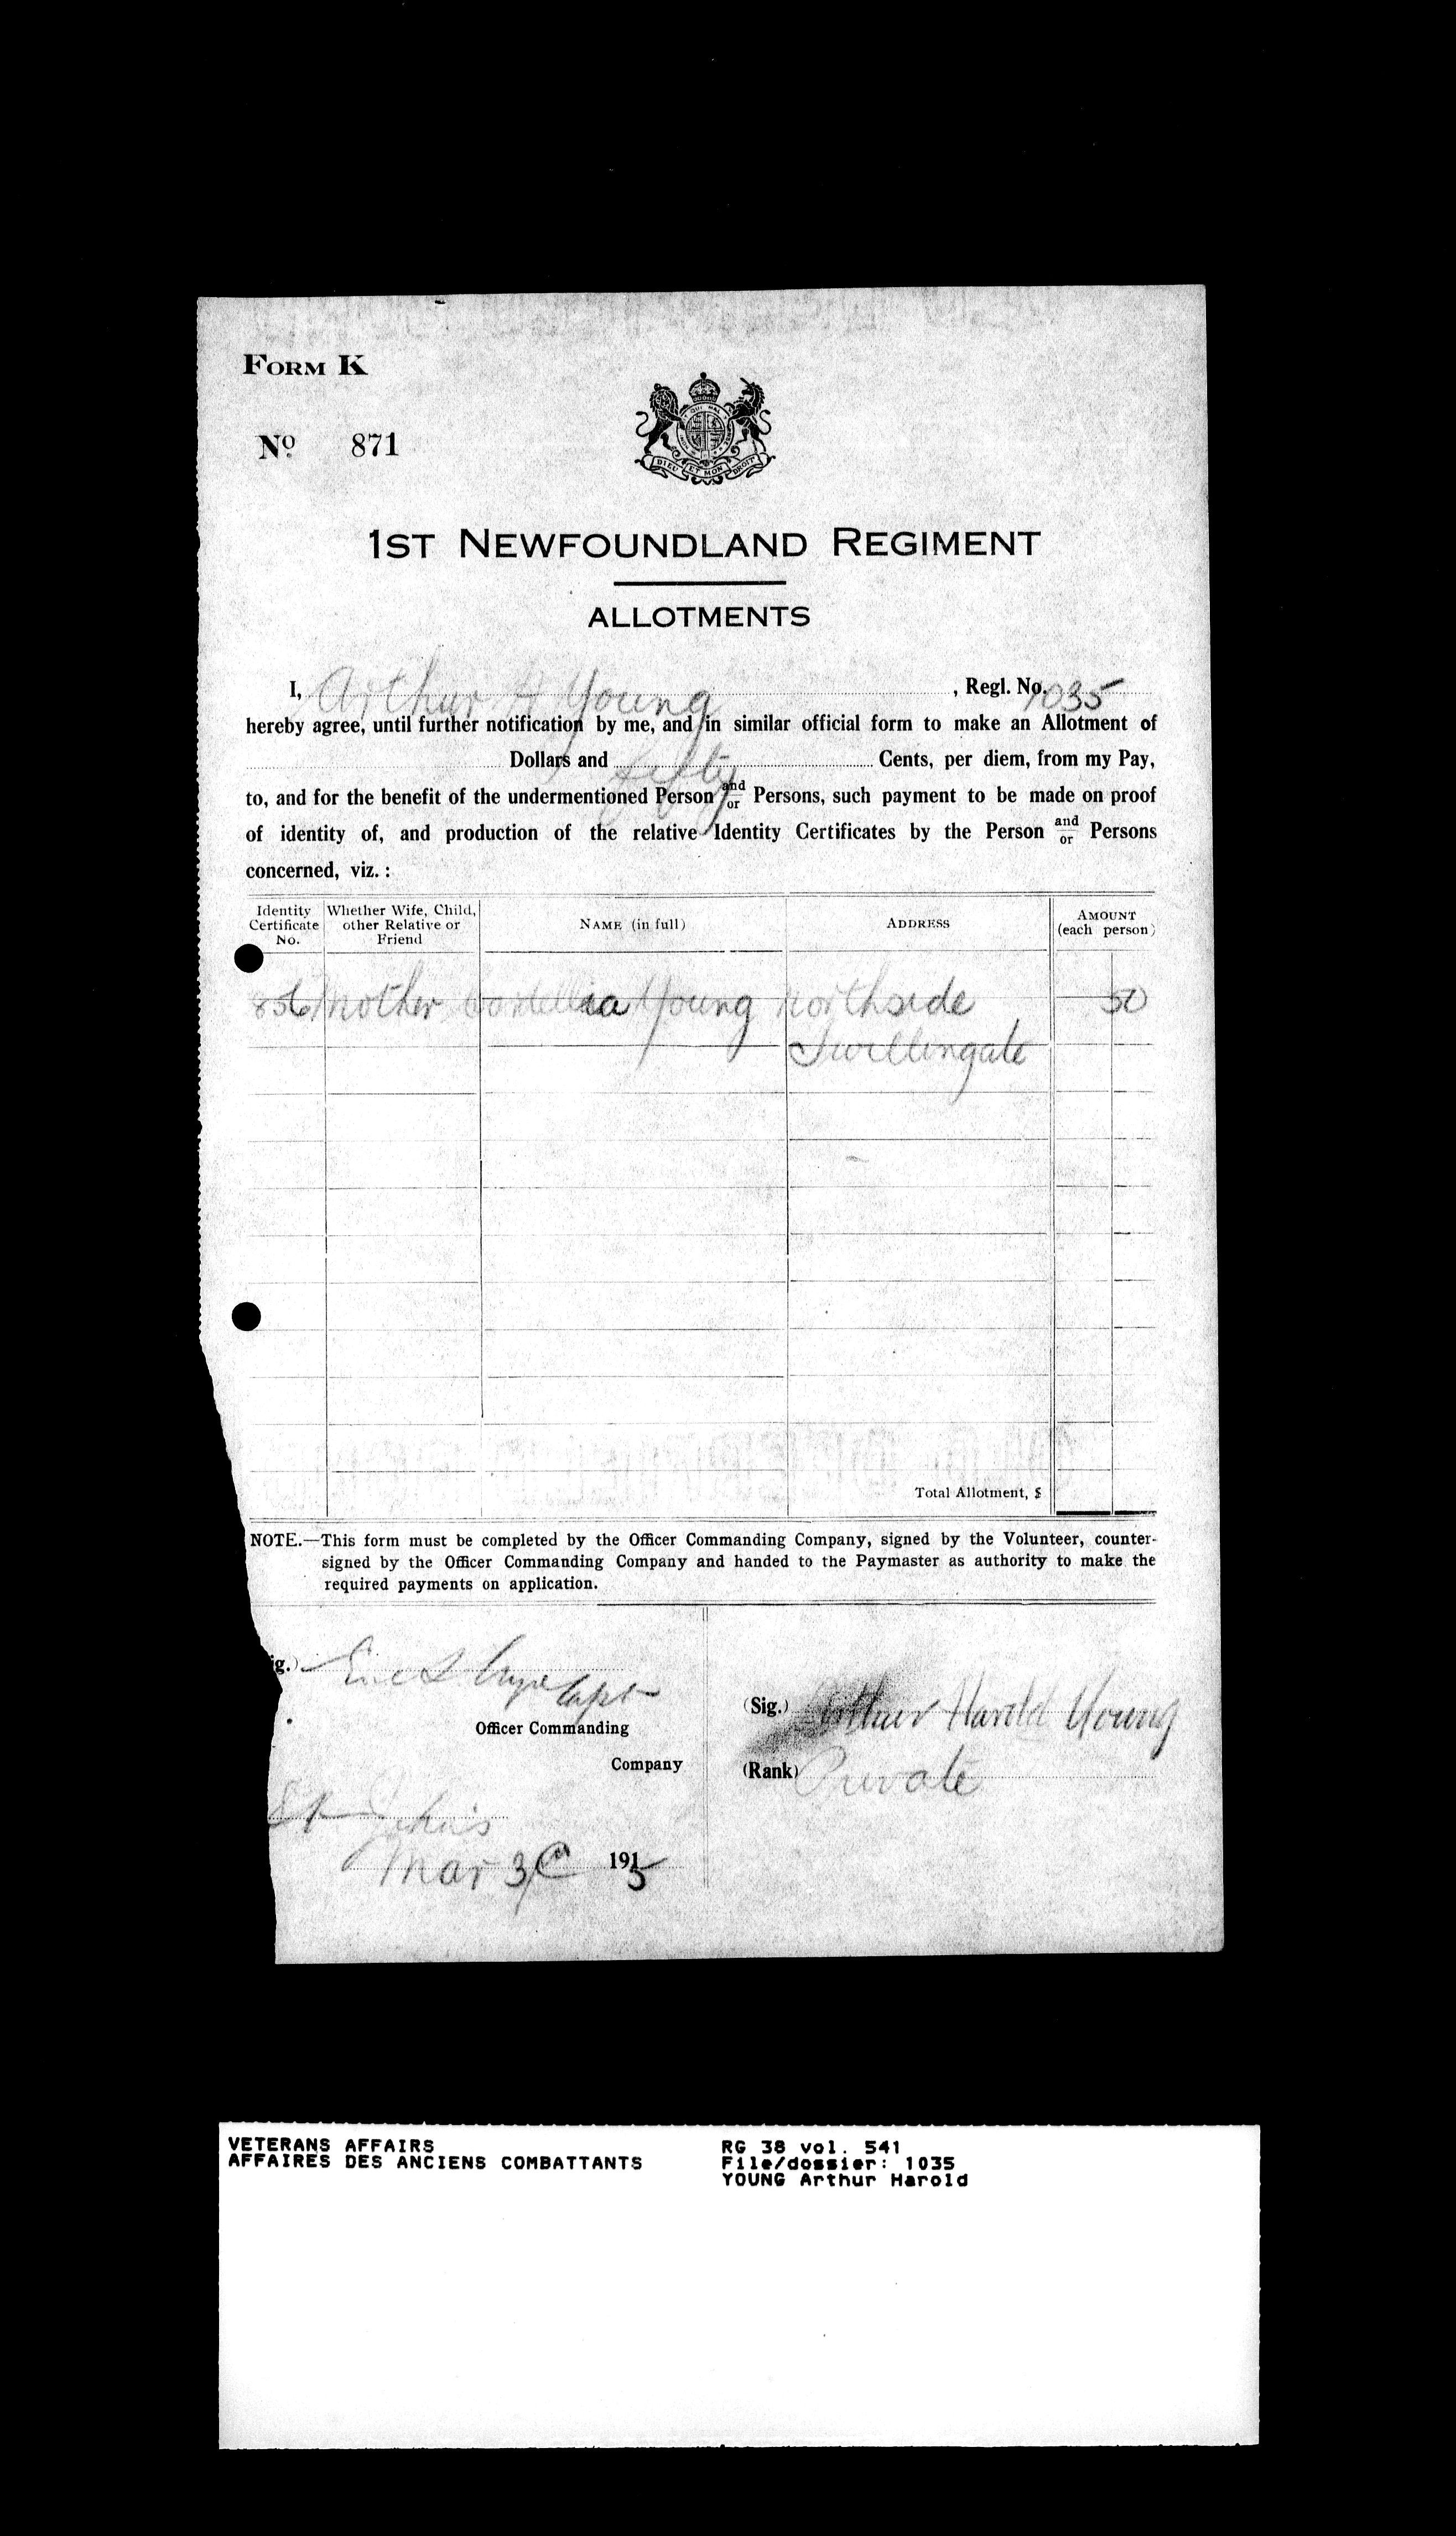 FORM K
No 871
DIEU ET MON DROIT
1ST NEWFOUNDLAND REGIMENT
ALLOTMENTS
I, Arthur H Young , Regl. No. 1035
hereby agree, until further notification by me, and in similar official form to make an Allotment of
Dollars and fifty Cents, per diem, from my Pay,
to, and for the benefit of the undermentioned Person and/or Persons, such payment to be made on proof
of identity of, and production of the relative Identity Certificates by the Person and/or Persons
concerned, viz. :
Identity Certificate No. Whether Wife, Child, other Relative or Friend NAME (in full) ADDRESS AMOUNT (each person)
856 Mother Cordellia Young Northside 50
Twillingate
Total Allotment, £
NOTE.—This form must be completed by the Officer Commanding Company, signed by the Volunteer, counter-
signed by the Officer Commanding Company and handed to the Paymaster as authority to make the
required payments on application.
ig.) Capt
Officer Commanding
Company
St John's
Mar 1915
(Sig.) Arthur Harold Young
(Rank) Private
VETERANS AFFAIRS
AFFAIRES DES ANCIENS COMBATTANTS
RG 38 vol. 541
File/dossier: 1035
YOUNG Arthur Harold